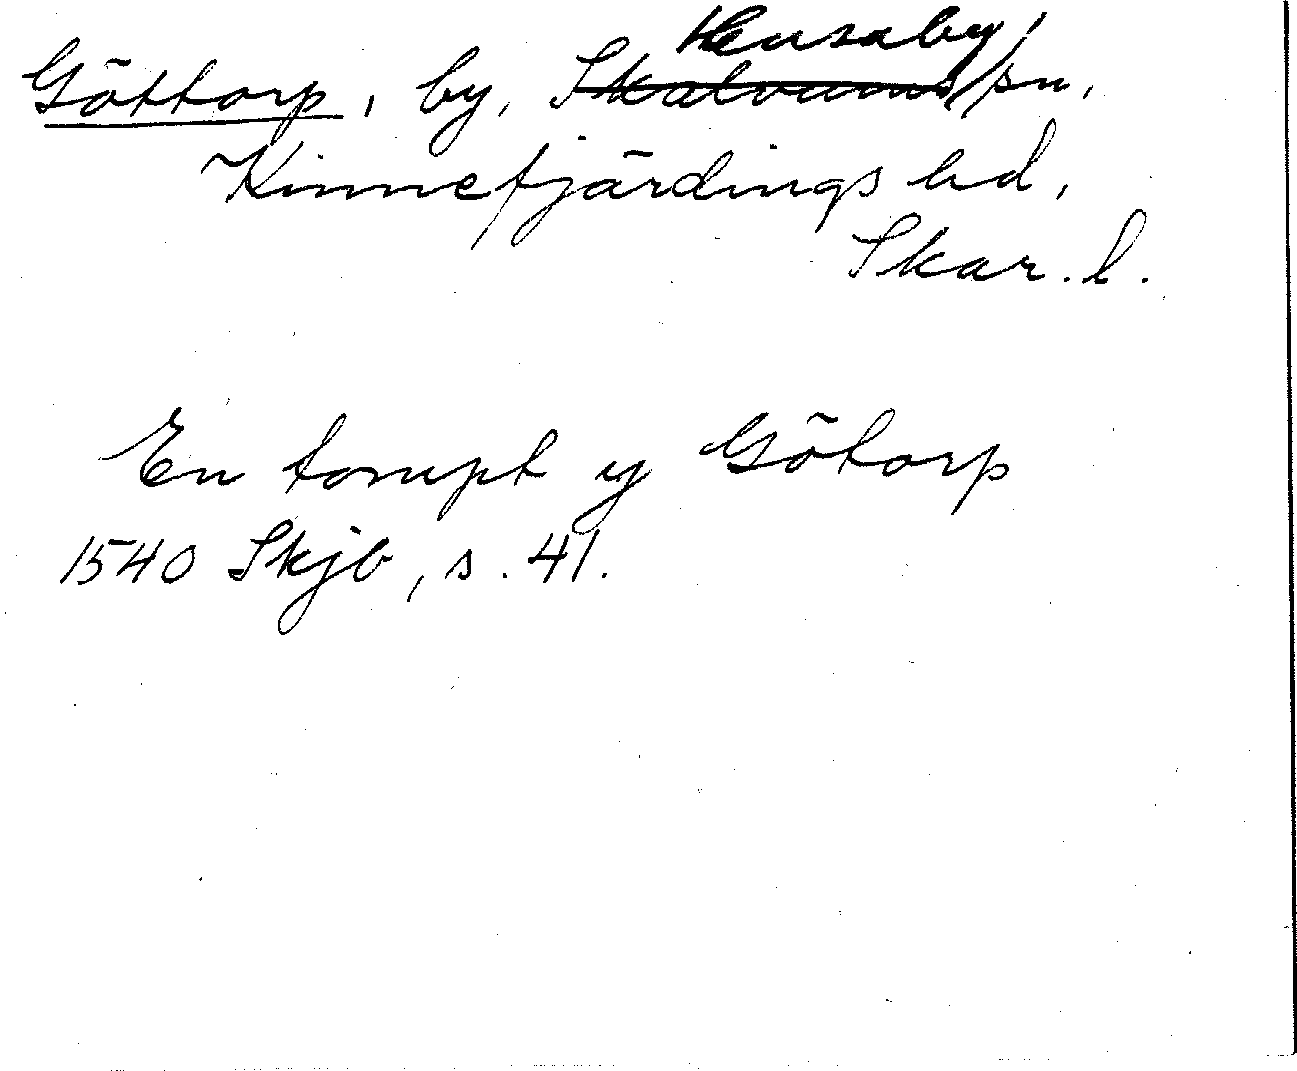 Husaby
Göttorp, by, Skalvums sn,
Kinnefjärdings hd,
Skar. l.
En tompt y Götorp
1540 Skjb, s. 41.